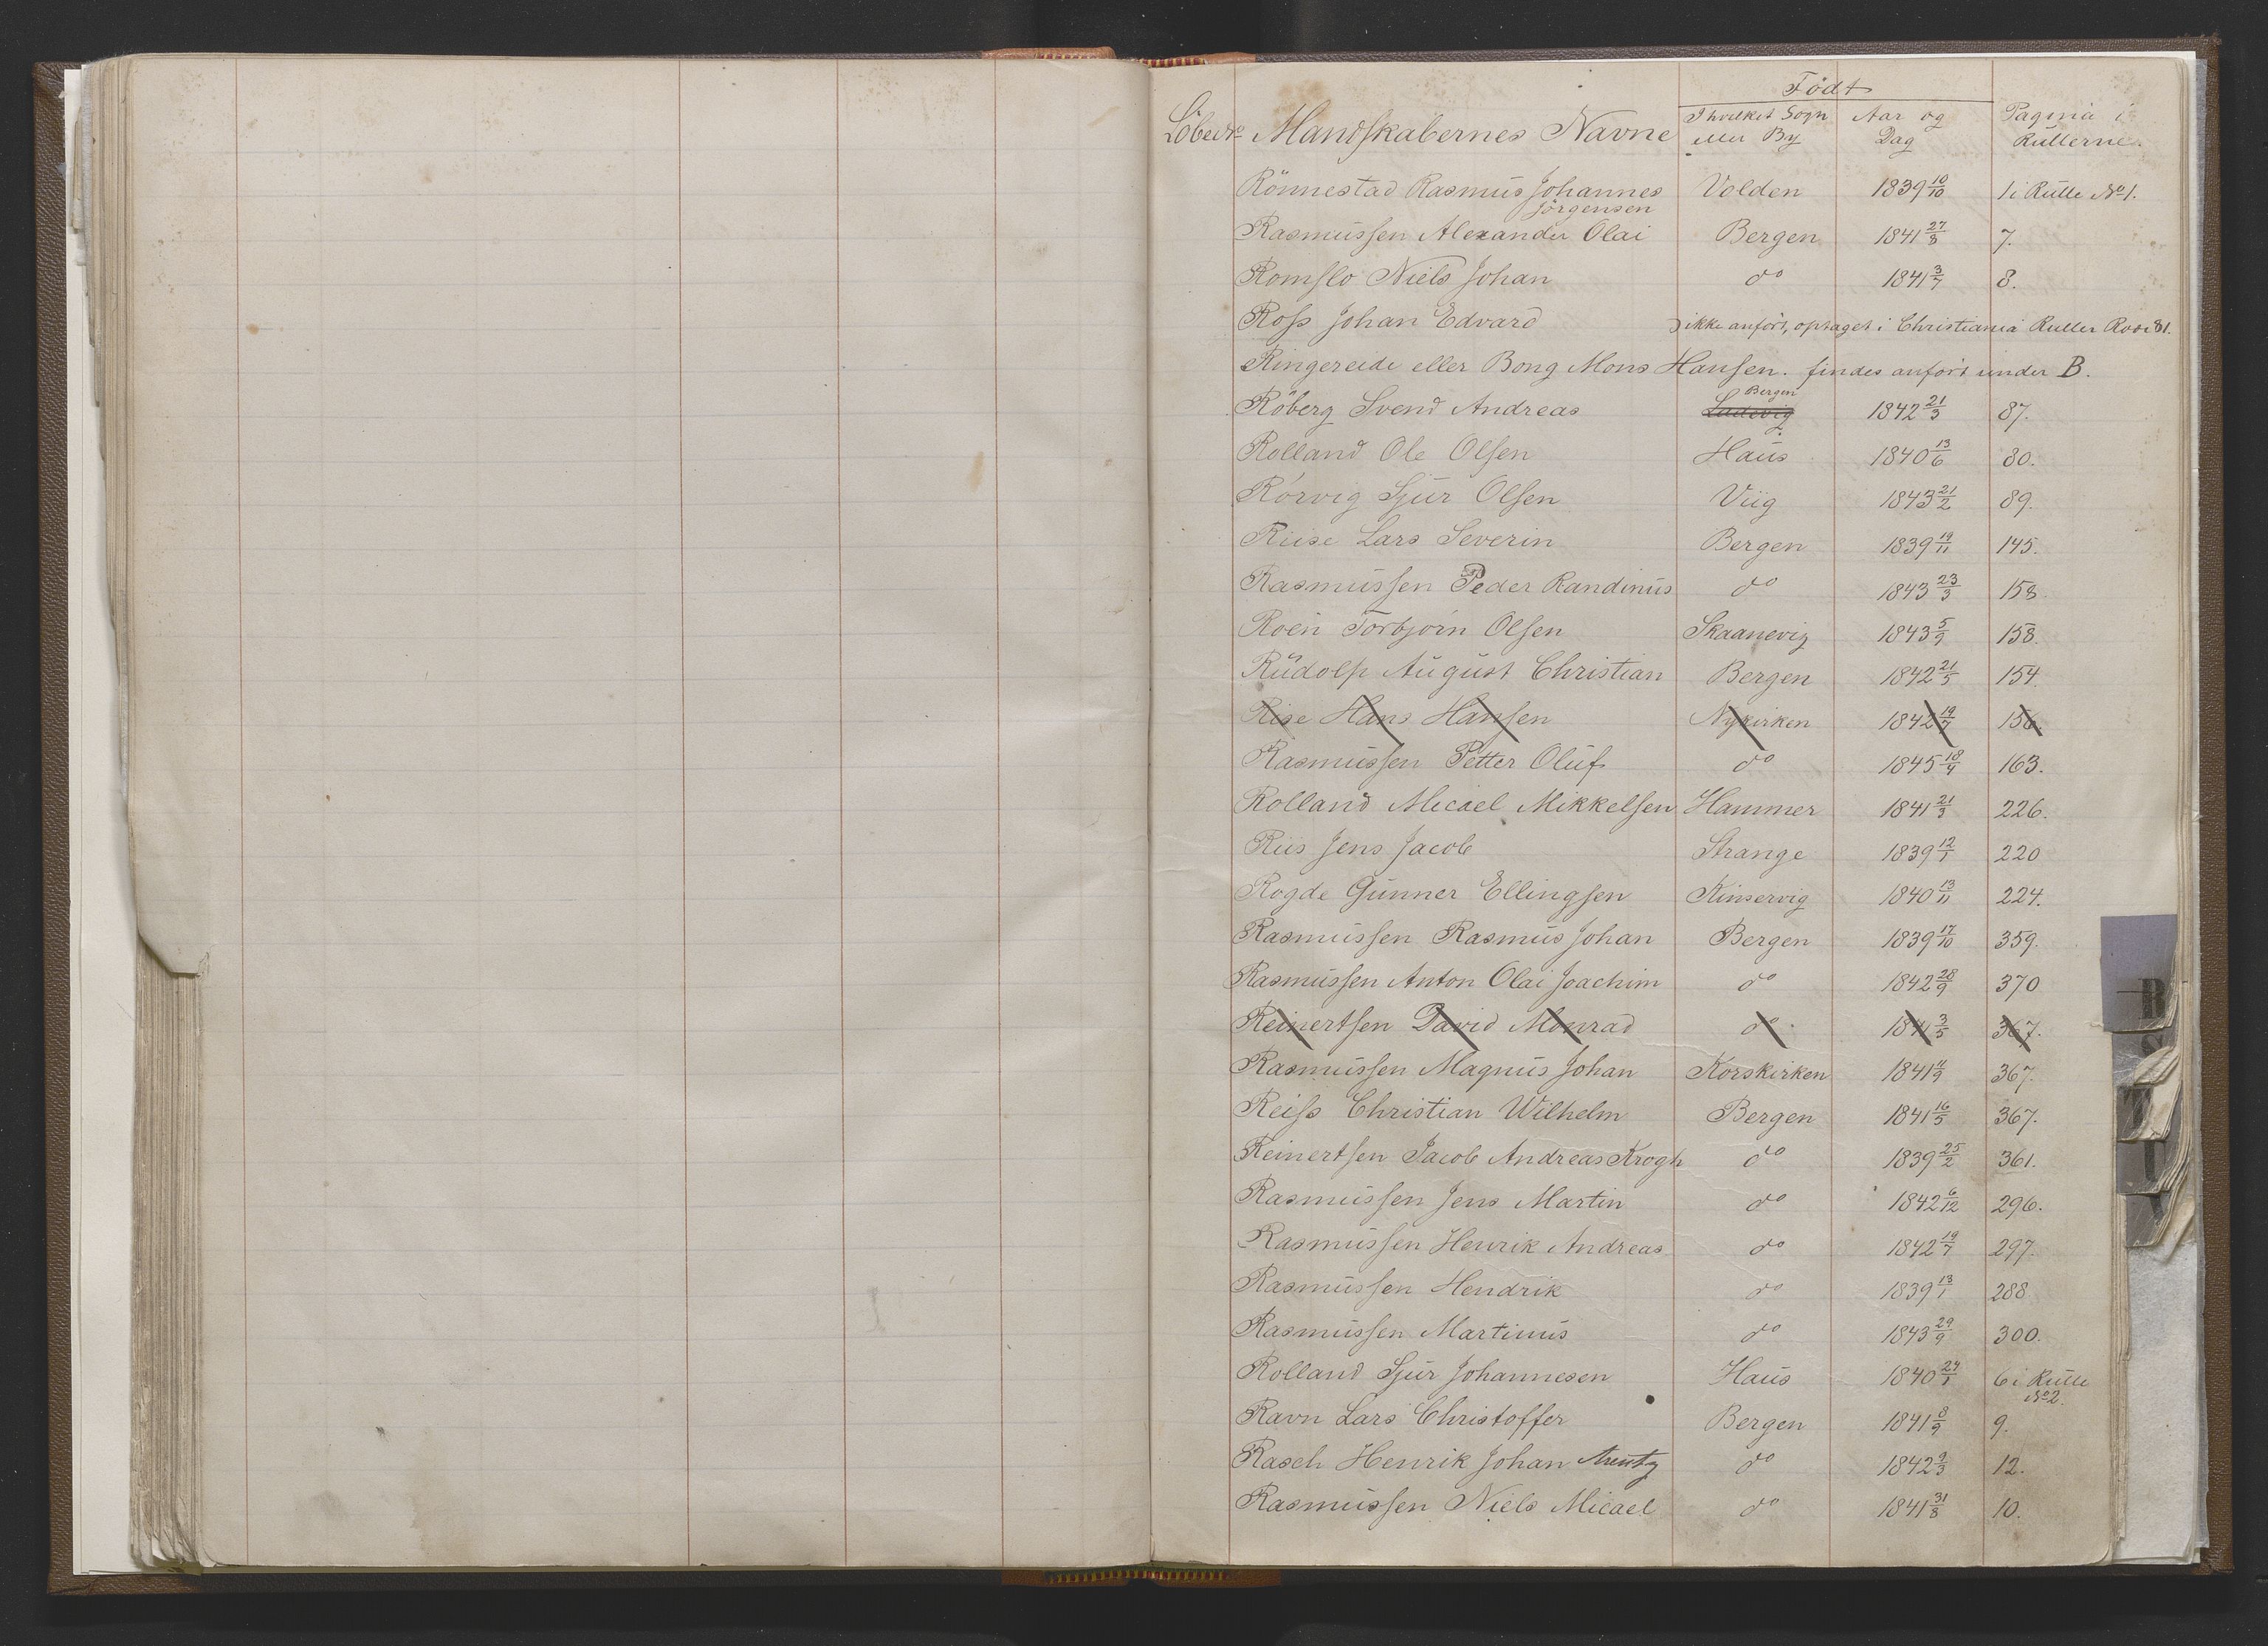 Födt
Löbe№ Mandskabernes Navne I hvilket Sogn Aar og Pagina i
eller By Dag Rullerne.
Rönnestad Rasmus Johannes Volden 1839 10/10 1 i Rulle № 1.
Jörgensen
Rasmussen Alexander Olai Bergen 1841 27/8 7.
Romslo Niels Johan do 1841 3/7 8.
Ross Johan Edvard ikke anfört, optaget i Christiania Ruller Rode 81.
Ringereide eller Bong Mons Hansen. findes anfört under B.
Bergen
Röberg Svend Andreas Ladevig 1842 21/3 87.
Rolland Ole Olsen Haus 1840 13/6 80.
Rörvig Sjur Olsen Viig 1843 21/2 89.
Riise Lars Severin Bergen 1839 19/11 145.
Rasmussen Peder Randinus do 1843 23/3 158.
Roen Torbjörn Olsen Skaanevig 1843 5/9 158.
Rudolph August Christian Bergen 1842 21/5 154.
Rise Hans Hansen Nykirken 1842 19/7 156.
Rasmussen Petter Oluf do 1845 18/4 163.
Rolland Micael Mikkelsen Hammer 1841 21/3 226.
Riis Jens Jacob Strange 1839 12/1 220
Rogde Gunner Ellingsen Kinservig 1840 13/11 224.
Rasmussen Rasmus Johan Bergen 1839 17/10 359.
Rasmussen Anton Olai Joachim do 1842 28/9 370
Reinertsen David Monrad do 1841 3/5 367.
Rasmussen Magnus Johan Korskirken 1841 4/9 367.
Reiss Christian Wilhelm Bergen 1841 16/5 367.
Reinertsen Jacob Andreas Krogh do 1839 25/2 361.
Rasmussen Jens Martin do 1842 6/12 296.
Rasmussen Henrik Andreas do 1842 19/7 297.
Rasmussen Hendrik do 1839 13/1 288
Rasmussen Martinus do 1843 29/9 300.
Rolland Sjur Johannesen Haus 1840 24/1 6 i Rulle
№ 2.
Ravn Lars Christoffer Bergen 1841 8/9 9.
Rasch Henrik Johan Arentz do 1842 9/3 12.
Rasmussen Niels Micael do 1841 31/8 10.
R